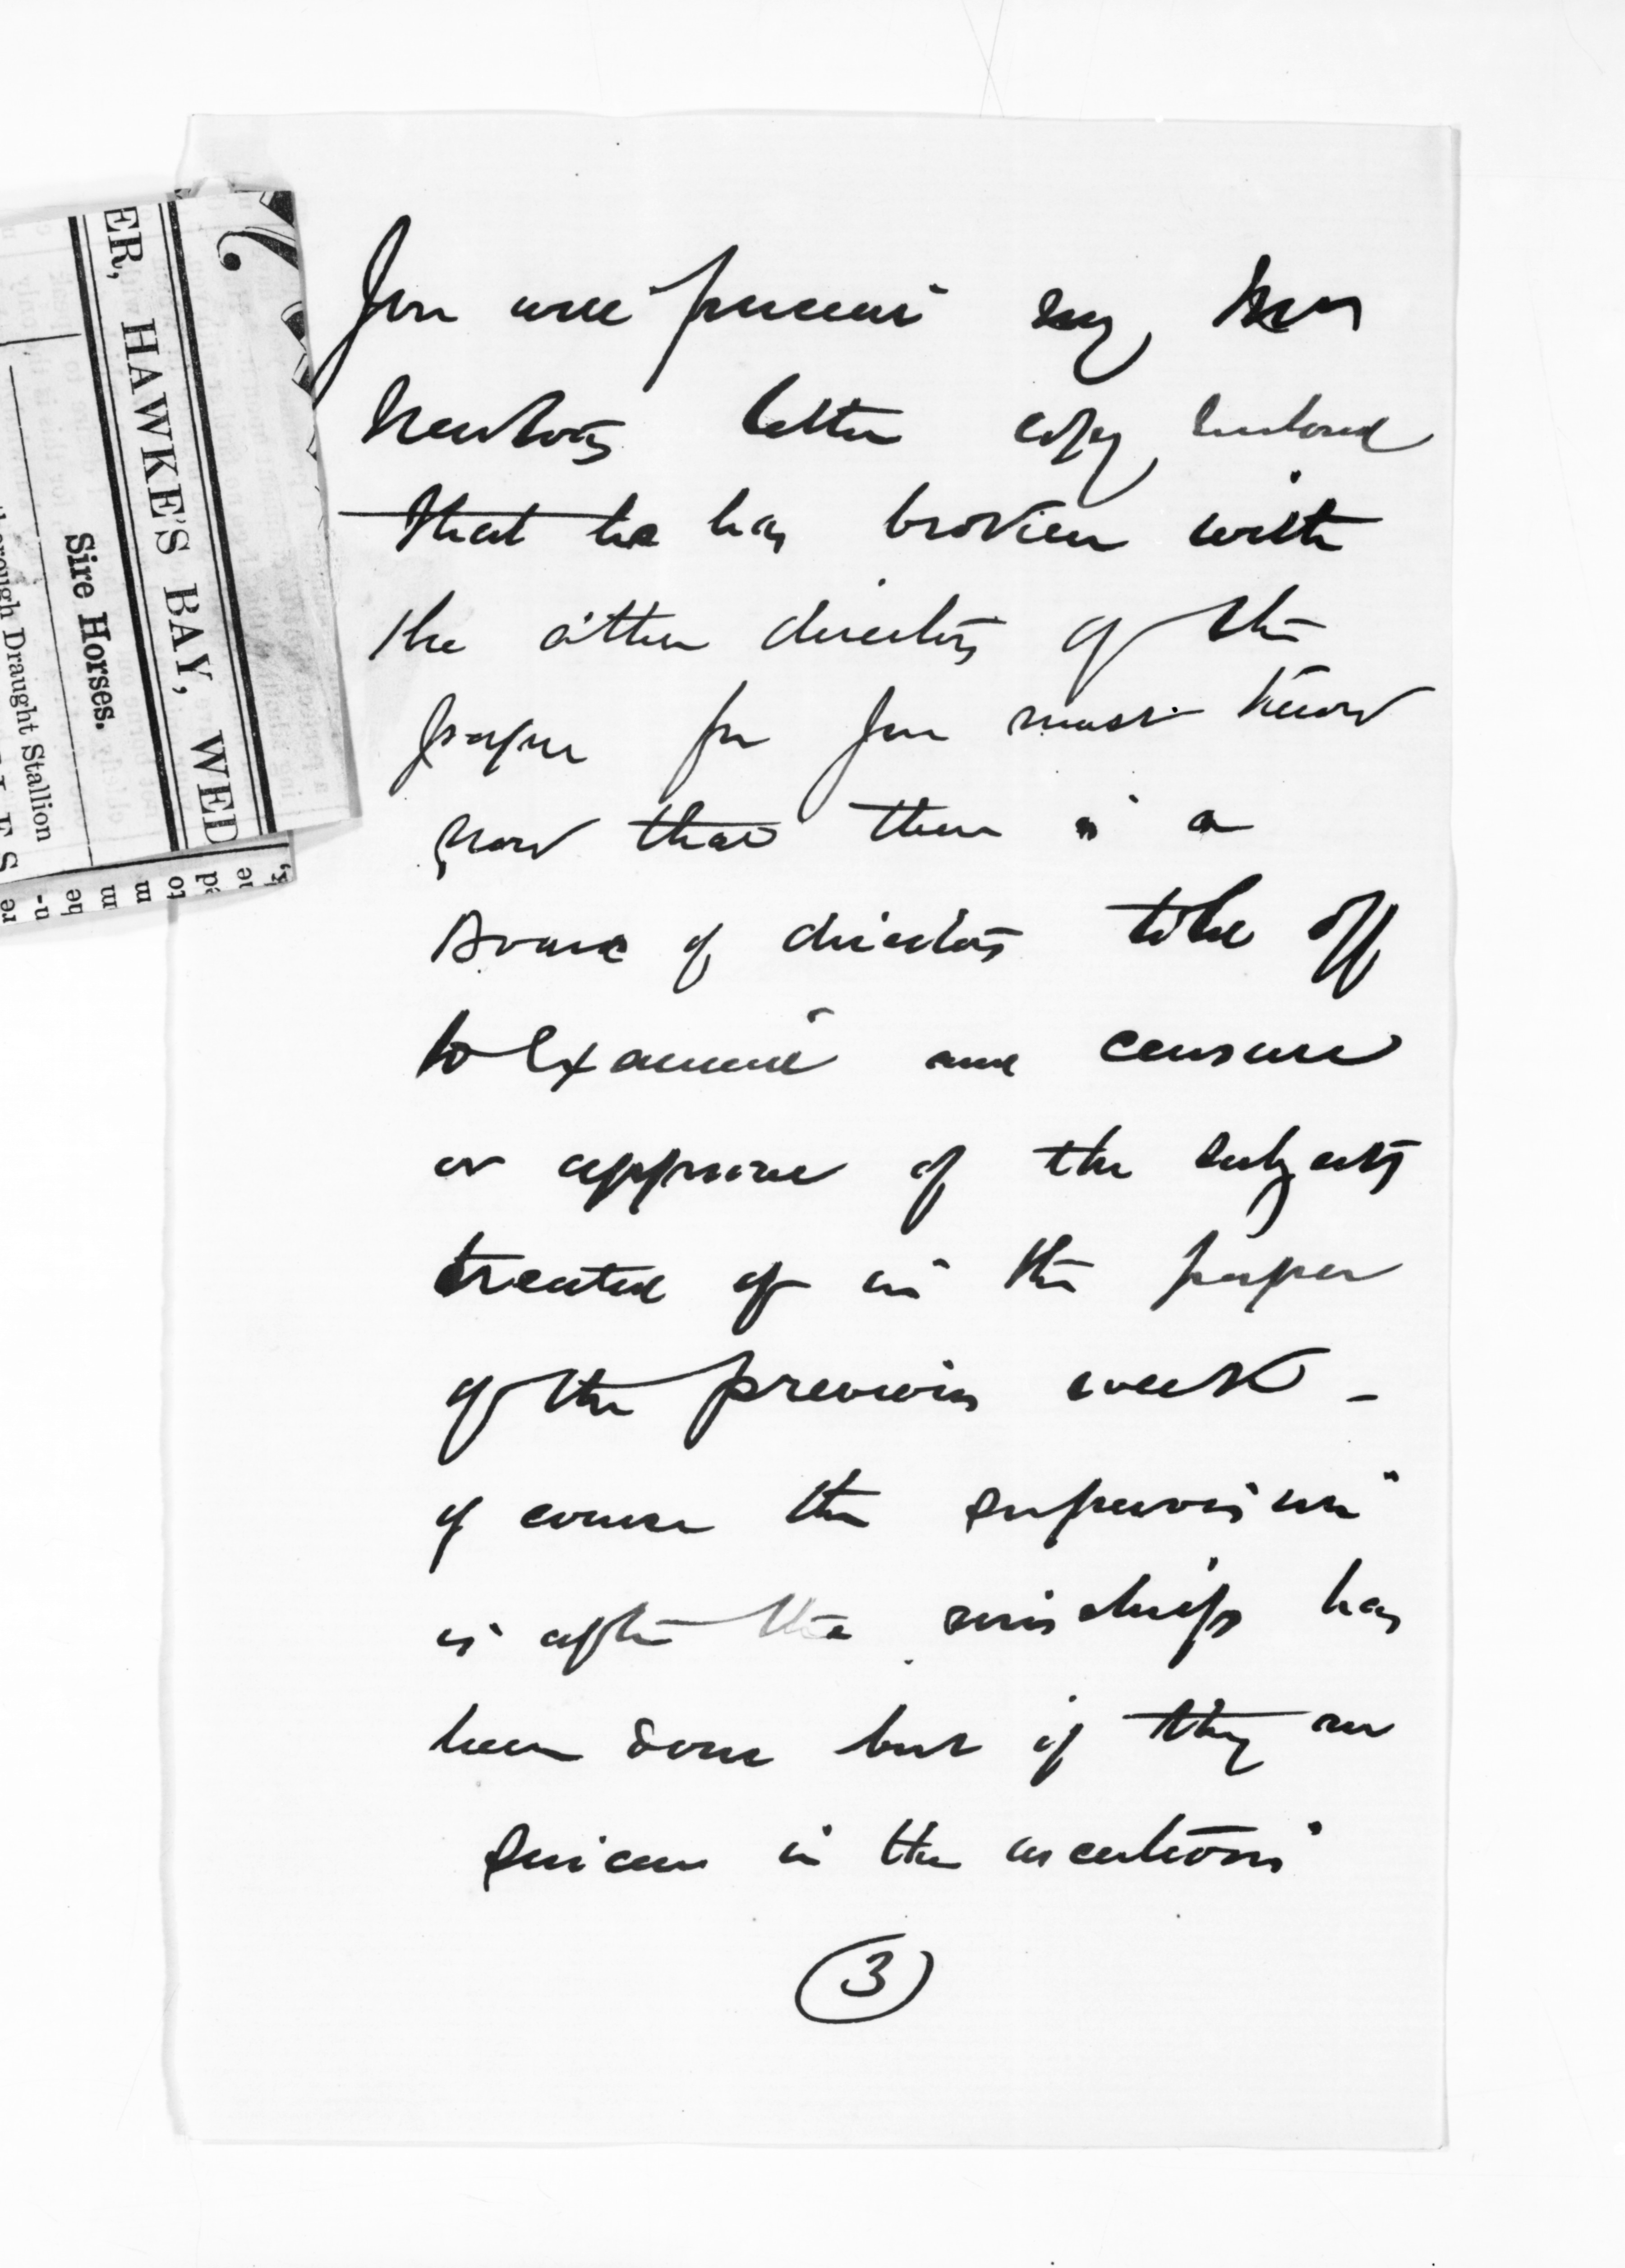 ER, HAWKE'S BAY, WED
Sire Horses.
horough Draught Stallion
You will perceive by
Newton's letter copy enclosed
that he has broken with
the other directors of the
paper for you must know
now that there is a
Board of directors told off
to examine and censure
or approve of the subjects
treated of in the paper
of the previous week -
of course the supervision
is after the mischief has
been done but if they are
sincere in the assertions
3